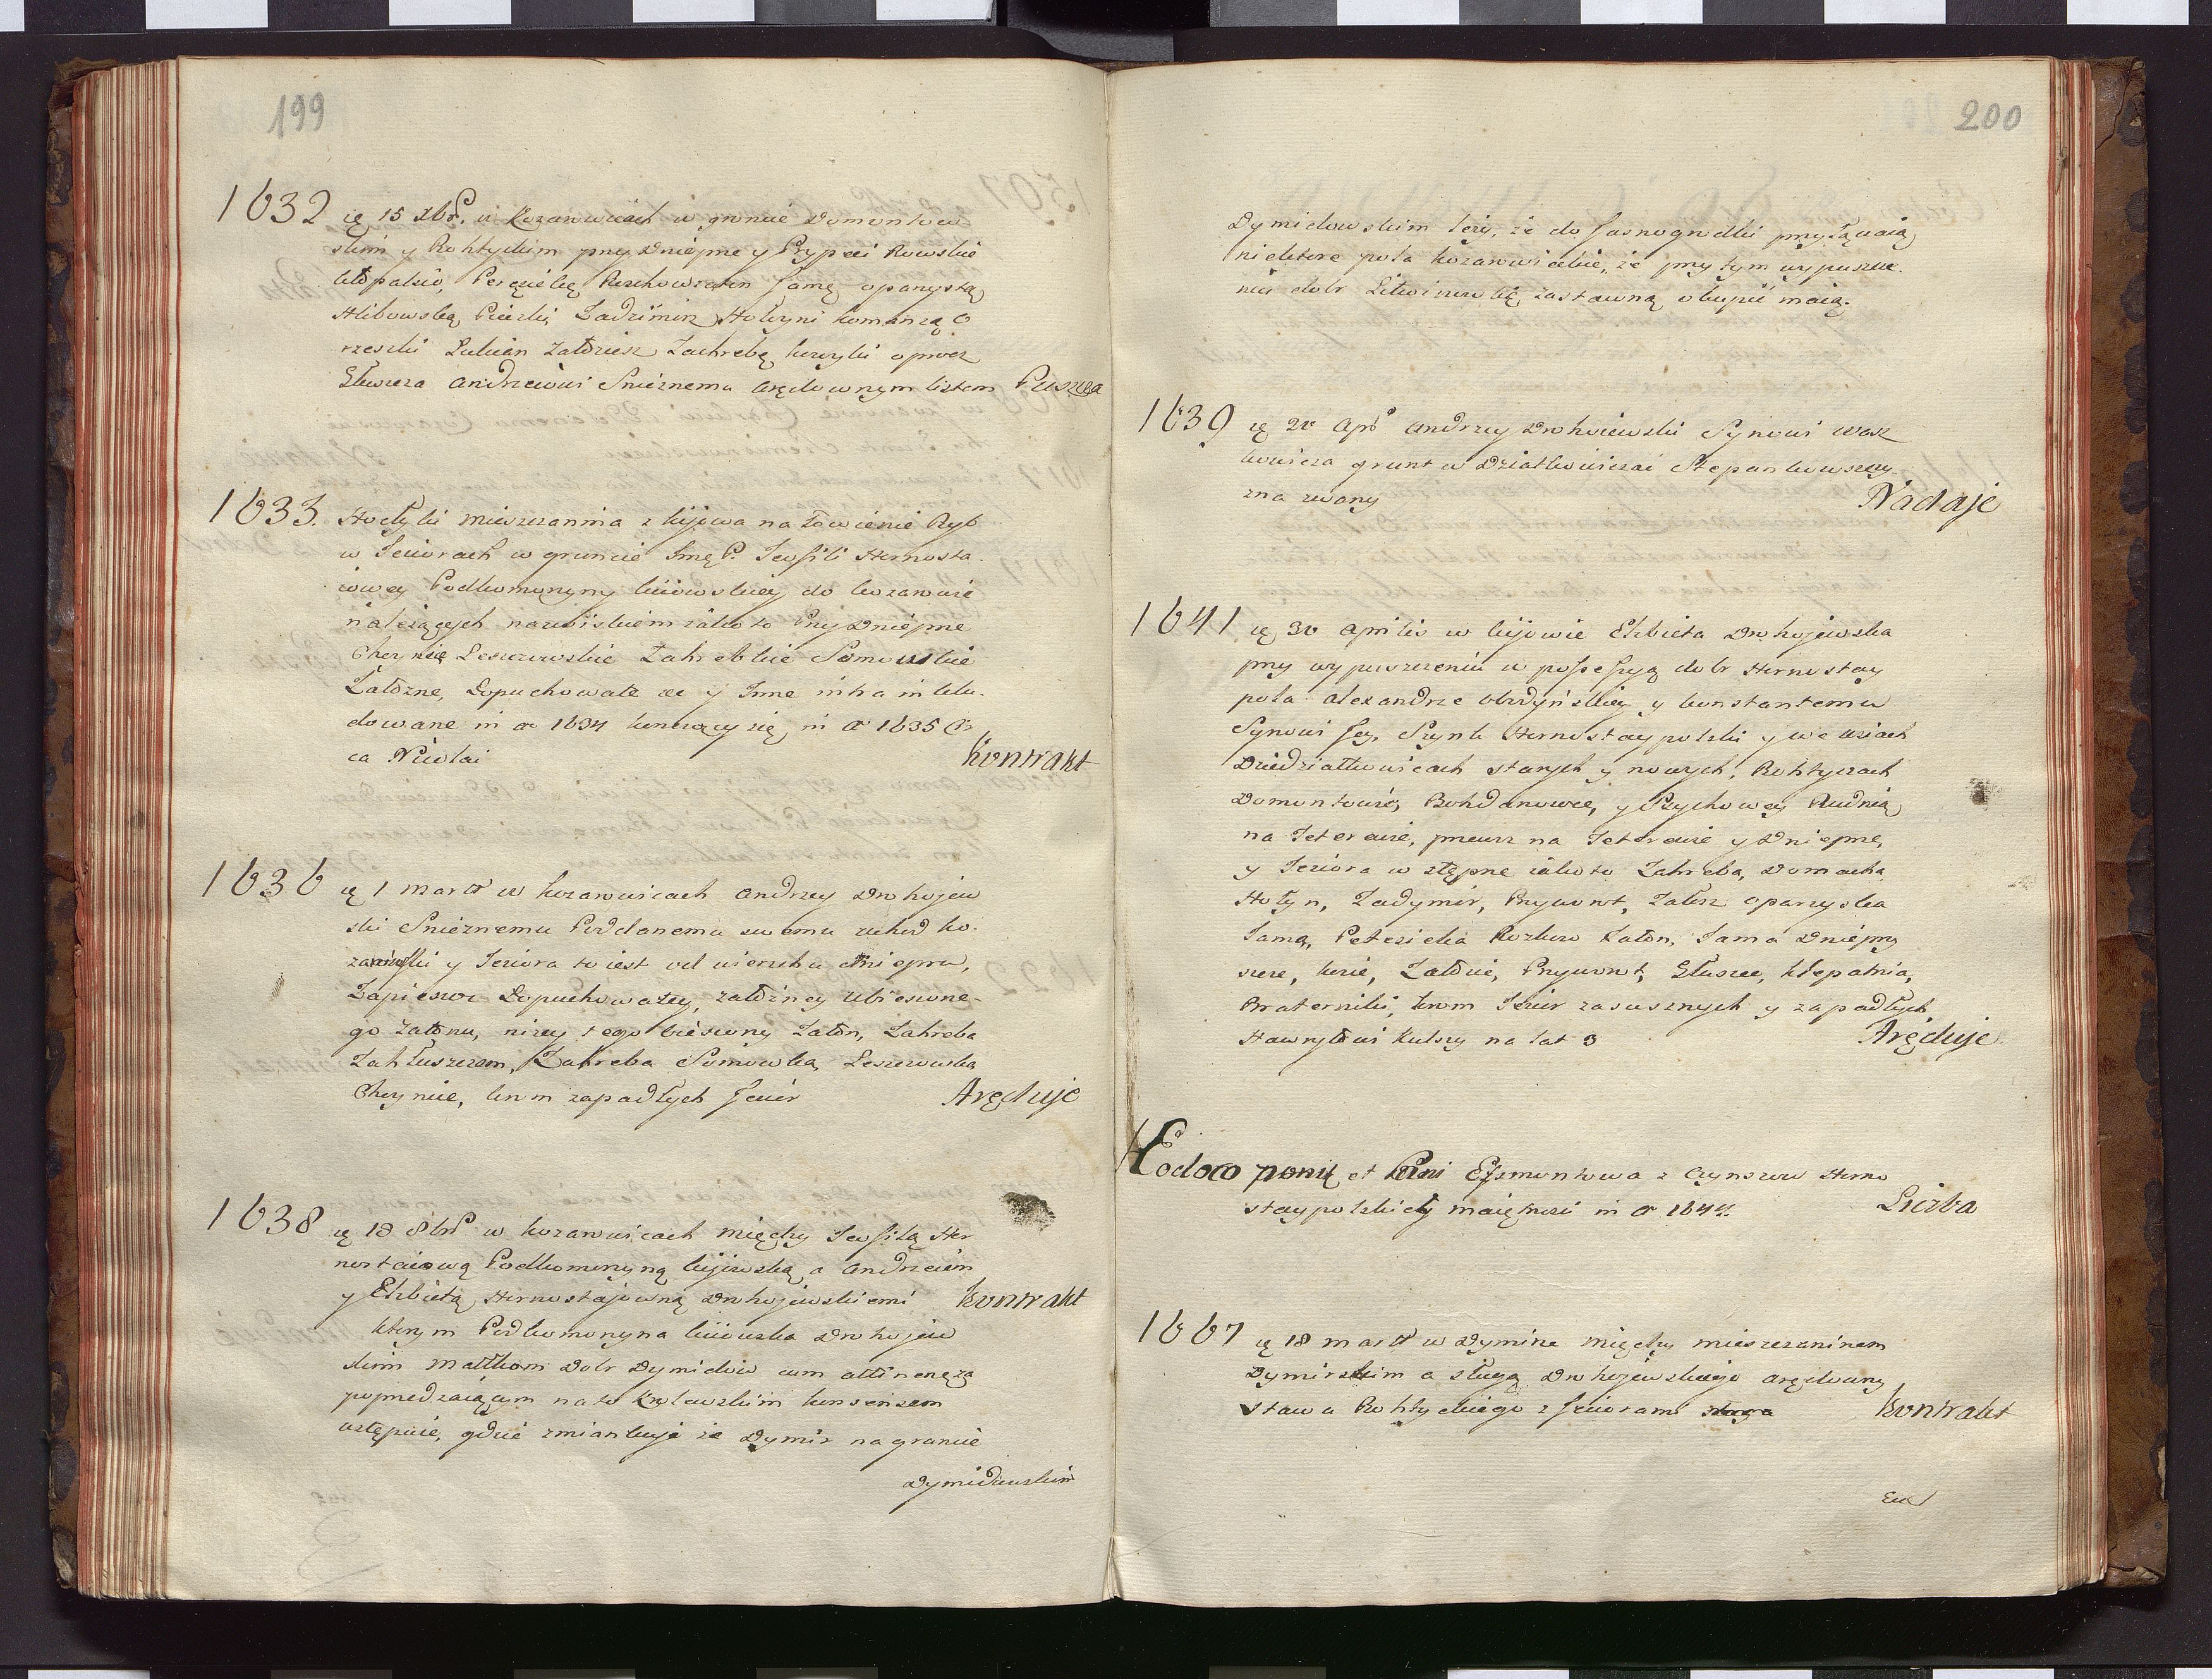 199
1632 ię 15 Xbr. w Kozarowicach w groncie Domontow
skim y Rohtyckim przy Dnieprze y Prypeci Rowskie
Klopatnio, Pereziekę Rzechowraten Jamę oparystą
Hlibowską Pieczki Zadzimin Hołyni Romanią O
rzeszki Lukian Załozicz Zachrebę Kuryki oprocz
Głuszcza Andrzeiowi Snieznemu Arędownym listem Puszcza
1633. Hołyki Mieszczanina z Kijowa na Łowienie Ryb
w Jeziorach w gruncie Jmę P. Teofili Hornosta
iowey Podkomorzyny Kiiowskiey do Kozarowic
należących nazwiskiem iako to Przy Dnieprze
Cherynię Leszczowskie Zahrebkie Somowskie
Załozne, Łopuchowate ee y Inne intra inklu.
dowane in ao 1634 konczący się in ao 1635 Cir
ca Nicolai Kontrakt
1636 ię 1 Marty w Kozarowicach Andrzey Drohojew
ski Snieznemu Poddanemu swemu uchod Ko.
zarowski y Jeziora to iest od wierzchu Dniepru,
Zapiesocz Łopuchowatey, załozney ubiesione-
go Zatonu, nizey tego biesiony Zaton, Zahreba
Zahłuszczem, Zahreba Somowka, Leszczowska
Cherynie, krom zapadłych Jezior Aręduje
1638 ię 18 8br w Kozarowicach między Teofilą Hor
nostaiową Podkomorzyną kijowską a Andrzeiem
y Elzbietą Hornostajowną Drohojewskiemi Kontrakt
którym Podkomorzyna kiiowska Drohojew
skim Małkom Dobr Dymidow cum attinency
poprzedzaiącym na to Krolewskim konsensem
ustępuie, gdzie zmiankuje że Dymir na gruncie
Dymidowskim
200
Dymidowskim leży, że do Jasnogrodki przyłączaią
niektore pola Kozarowickie, że przy tym wypuszcze.
niu dobr Litwinowkę zastawną okupić maią.
1639 ię 20 Apr Andrzey Drohoiewski Synowi Wosz
kowicza grunt w Dziatkowiczai Stepankowszczy
zna zwany Nadaje
1641 ię 30 Aprilis w kijowie Elzbieta Drohojewska
przy wypuszczeniu w possessyą dobr Hornostay
pola Alexandrze Obodyńskiey y Konstantemu
Synowi Jey, Szynk Hornostaypolski y we wsiach
Dziedziatkowicach starych y nowych, Rohtyczach
Domontowie, Bohdanowce, y Psychowey Rudnią
na Teterewie, przewoz na Teterewie y Dnieprze,
y Jeziora w stępne iako to Zahreba, Domacha
Hołyn, Zadymir, Prywort, Zatosz oparzyska
Jama, Peteziecka Rozkow Zaton, Jama Dniepry
szcze, kosie, Załozie, Prywort, Głuszec, Kłepatnia,
Braterniki, krom Jezior zasusznych y zapadłych
Hawryłowi Kulszy na lat 3 Aręduje
Hodow et Eysmontowa z Czynszow Horno
staypolskiey maiętnosci in ao 1644. Liczba
1667 ię 18 Marty w Dymirze między Mieszczaninem
Dymirskim a sługą Drohojewskiego arędowny
Stawu Rohtyckiego z Jeziorami Kontrakt